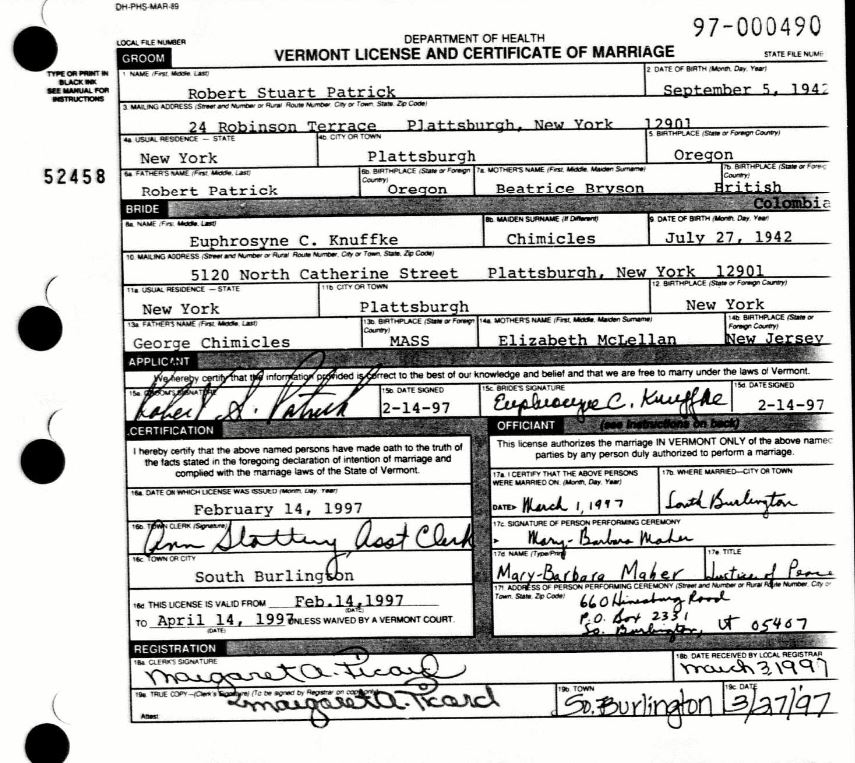 DH-PHS-MAR-89
97-000490
LOCAL FILE NUMBER
DEPARTMENT OF HEALTH
VERMONT LICENSE AND CERTIFICATE OF MARRIAGE
STATE FILE NUME
TYPE OR PRINT IN BLACK INK SEE MANUAL FOR INSTRUCTIONS
52458
GROOM
1 NAME (First, Middle, Last) 2 DATE OF BIRTH (Month, Day, Year)
Robert Stuart Patrick September 5, 1942
3. MAILING ADDRESS (Street and Number or Rural Route Number, City or Town, State, Zip Code)
24 Robinson Terrace Plattsburgh, New York 12901
4a USUAL RESIDENCE — STATE 4b. CITY OR TOWN 5. BIRTHPLACE (State or Foreign Country)
New York Plattsburgh Oregon
6a FATHER'S NAME (First, Middle, Last) 6b. BIRTHPLACE (State or Foreign Country) 7a. MOTHER'S NAME (First, Middle, Maiden Surname) 7b. BIRTHPLACE (State or Foreig Country)
Robert Patrick Oregon Beatrice Bryson British Colombia
BRIDE
8a. NAME (First, Middle, Last) 8b. MAIDEN SURNAME (If Different) 9. DATE OF BIRTH (Month, Day, Year)
Euphrosyne C. Knuffke Chimicles July 27, 1942
10. MAILING ADDRESS (Street and Number or Rural Route Number, City or Town, State, Zip Code)
5120 North Catherine Street Plattsburgh, New York 12901
11a USUAL RESIDENCE — STATE 11b CITY OR TOWN 12. BIRTHPLACE (State or Foreign Country)
New York Plattsburgh New York
13a. FATHER'S NAME (First, Middle, Last) 13b. BIRTHPLACE (State or Foreign Country) 14a. MOTHER'S NAME (First, Middle, Maiden Surname) 14b. BIRTHPLACE (State or Foreign Country)
George Chimicles MASS Elizabeth McLellan New Jersey
APPLICANT
We hereby certify that the information provided is correct to the best of our knowledge and belief and that we are free to marry under the laws of Vermont.
15a. GROOM'S SIGNATURE 15b. DATE SIGNED 15c. BRIDE'S SIGNATURE 15d. DATE SIGNED
Robert S. Patrick 2-14-97 Euphrosyne C. Knuffke 2-14-97
CERTIFICATION
I hereby certify that the above named persons have made oath to the truth of the facts stated in the foregoing declaration of intention of marriage and complied with the marriage laws of the State of Vermont.
16a. DATE ON WHICH LICENSE WAS ISSUED (Month, Day, Year)
February 14, 1997
16b. TOWN CLERK (Signature)
Ann Slattery, Asst Clerk
16c TOWN OR CITY
South Burlington
16d THIS LICENSE IS VALID FROM Feb.14,1997
(DATE)
TO April 14, 1997 UNLESS WAIVED BY A VERMONT COURT.
(DATE)
OFFICIANT (see instructions on back)
This license authorizes the marriage IN VERMONT ONLY of the above namec parties by any person duly authorized to perform a marriage.
17a. I CERTIFY THAT THE ABOVE PERSONS WERE MARRIED ON: (Month, Day, Year) 17b. WHERE MARRIED—CITY OR TOWN
DATE▸ March 1, 1997 South Burlington
17c. SIGNATURE OF PERSON PERFORMING CEREMONY
▸ Mary-Barbara Maher
17d. NAME (Type/Print) 17e. TITLE
Mary-Barbara Maher Justice of Peace
17f. ADDRESS OF PERSON PERFORMING CEREMONY (Street and Number or Rural Route Number, City or Town, State, Zip Code)
660 Hinesburg Road
P.O. Box 2331
So. Burlington, VT 05407
REGISTRATION
18a. CLERK'S SIGNATURE 18b. DATE RECEIVED BY LOCAL REGISTRAR
Margaret A. Picard March 3, 1997
19a. TRUE COPY—(Clerk's Signature) (To be signed by Registrar on copy only) 19b. TOWN 19c. DATE
Attest: Margaret A. Picard So. Burlington 3/27/97